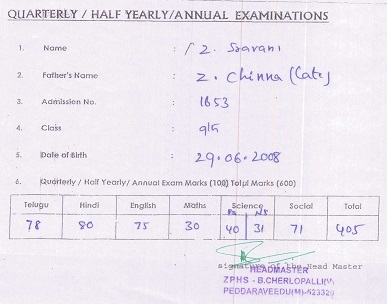 QUARTERLY / HALF YEARLY/ANNUAL EXAMINATIONS
1. Name : Z. Sravani
2. Father's Name : Z. Chinna (Late)
3. Admission No. : 1653
4. Class : 9th
5. Date of Birth : 29.06.2008
6. Quarterly / Half Yearly/ Annual Exam Marks (100) Total Marks (600)
Telugu Hindi English Maths Science Social Total
PS NS
78 80 75 30 40 31 71 405
signature of the Head Master
HEADMASTER
ZPHS - B.CHERLOPALLI(V)
PEDDARAVEEDU(M)-523320